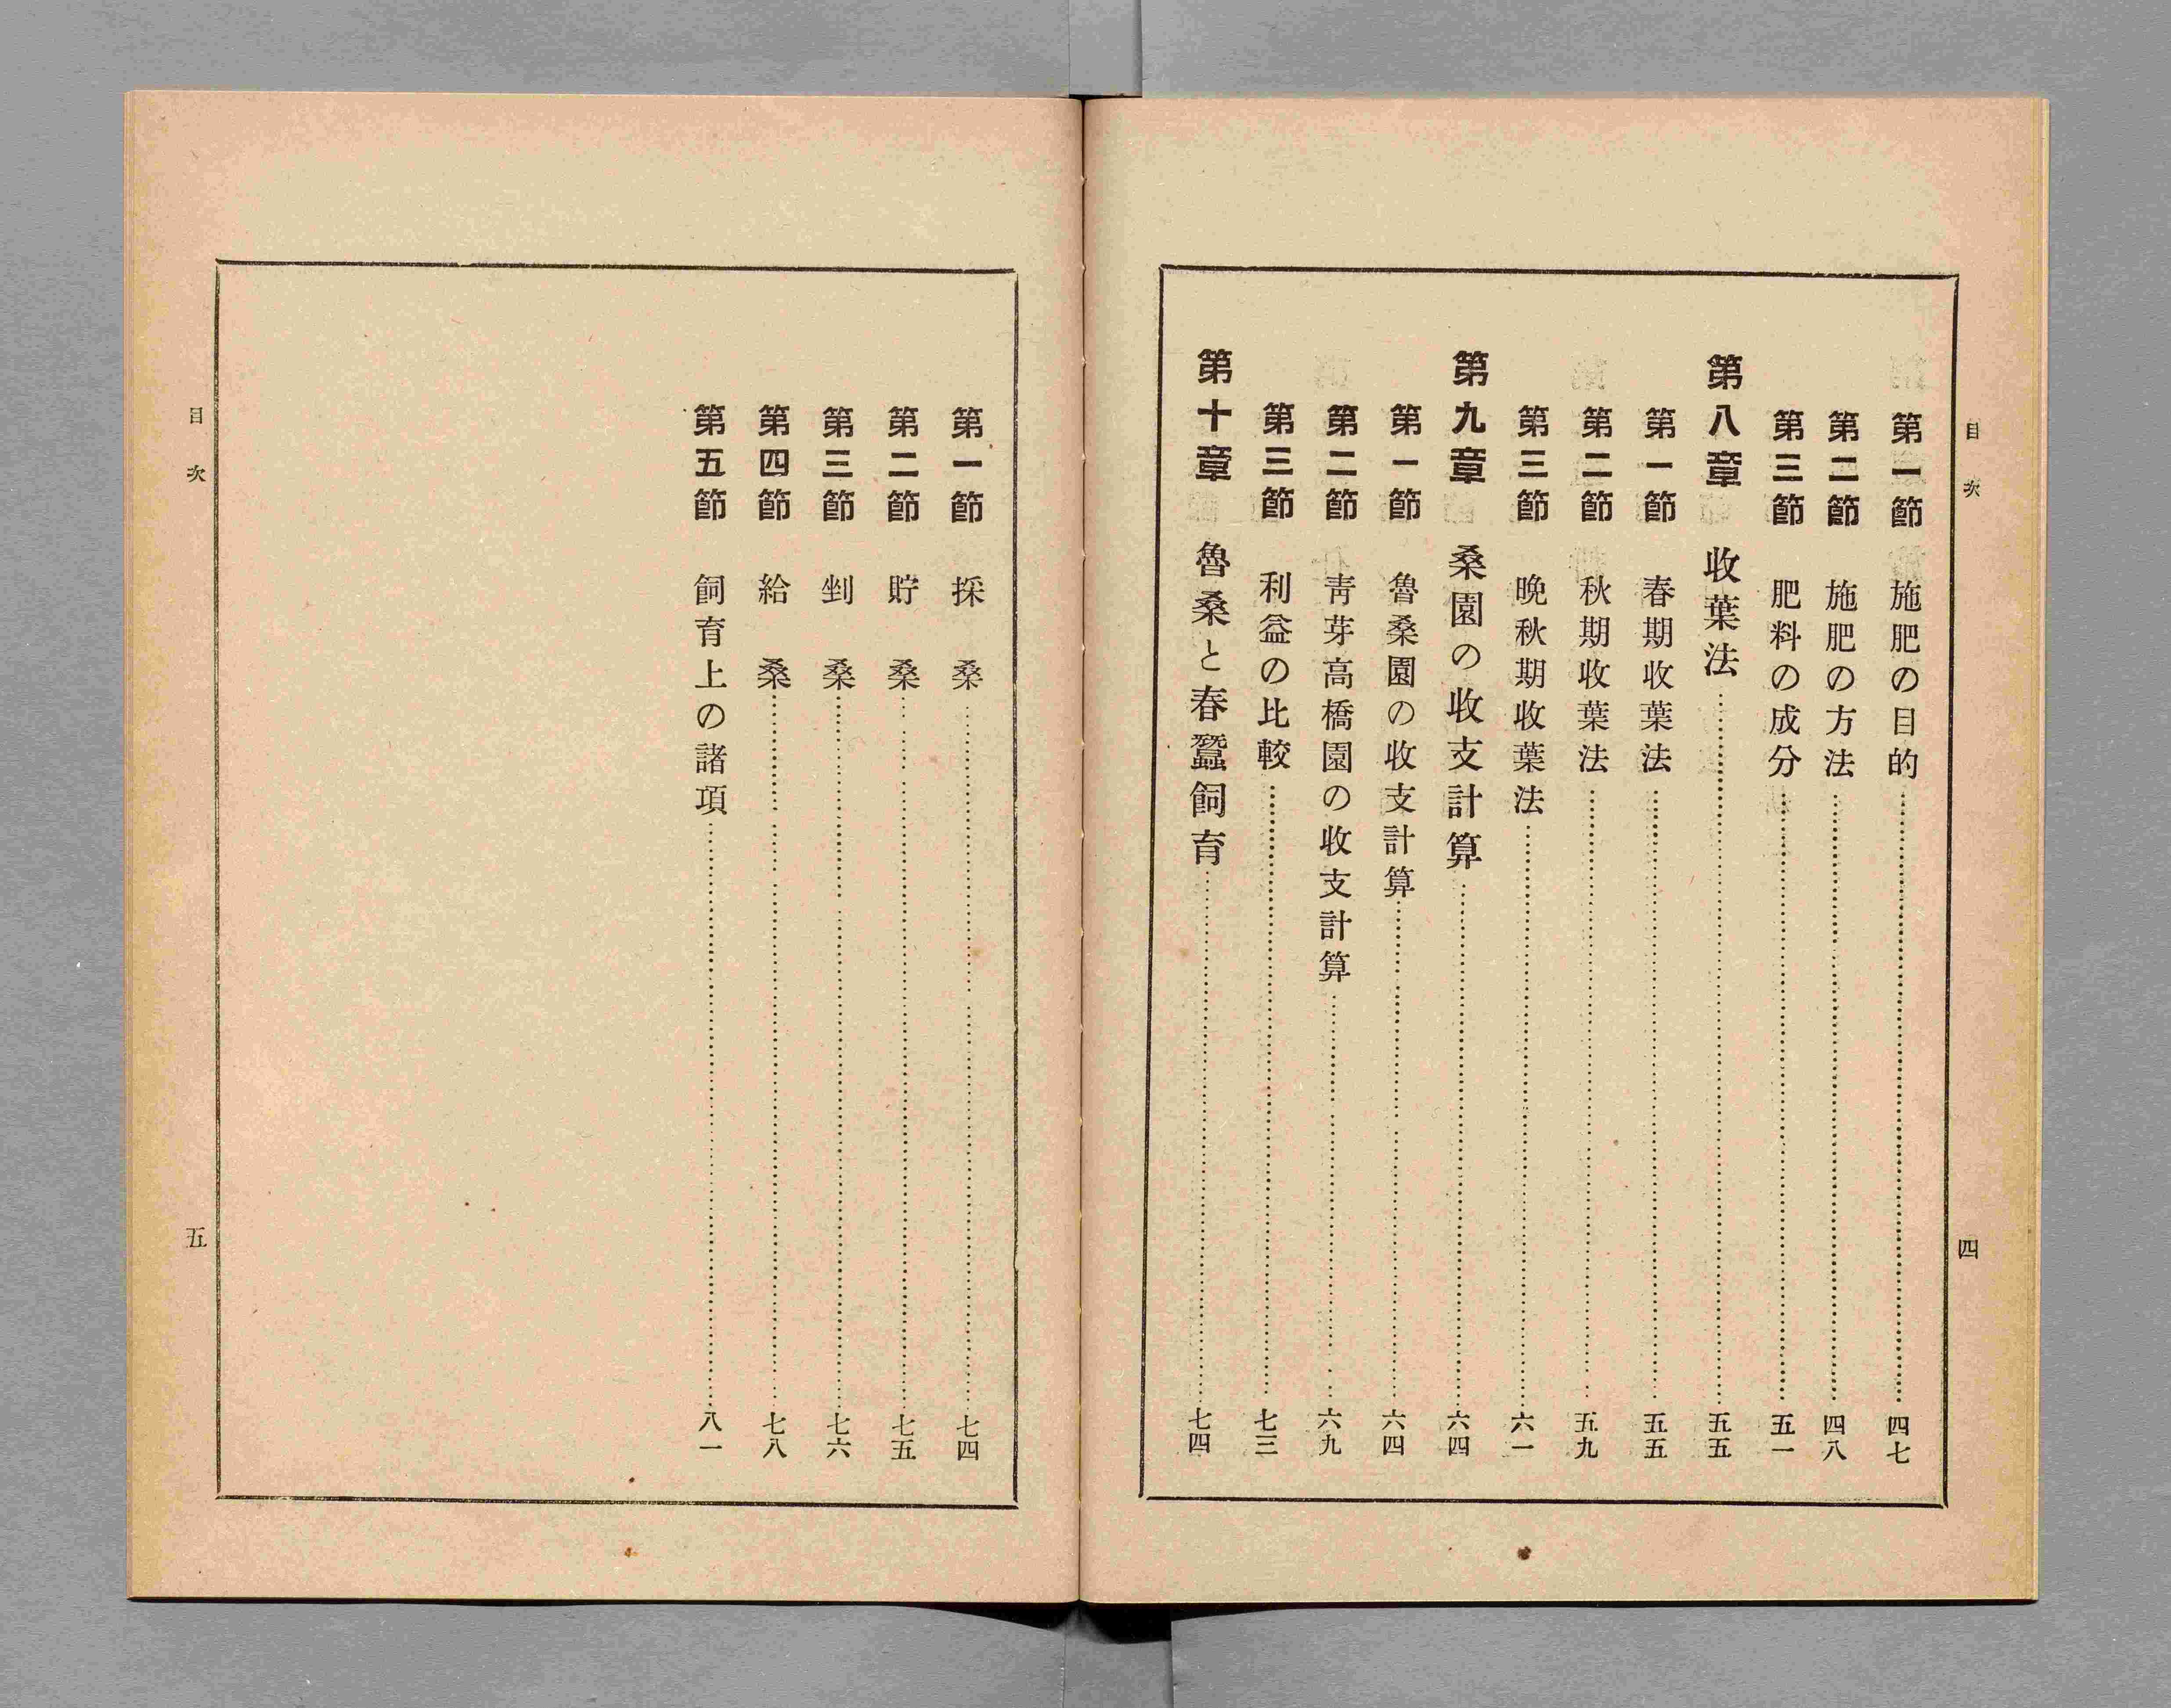 目次
四
第一節 施肥の目的…………四七
第二節 施肥の方法…………四八
第三節 肥料の成分…………五一
第八章 收葉法…………五五
第一節 春期收葉法…………五五
第二節 秋期收葉法…………五九
第三節 晩秋期收葉法…………六一
第九章 桑園の收支計算…………六四
第一節 魯桑園の收支計算…………六四
第二節 靑芽高橋園の收支計算…………六九
第三節 利益の比較…………七三
第十章 魯桑と春蠶飼育…………七四
第一節 採桑…………七四
第二節 貯桑…………七五
第三節 剉桑…………七六
第四節 給桑…………七八
第五節 飼育上の諸項…………八一
目次
五